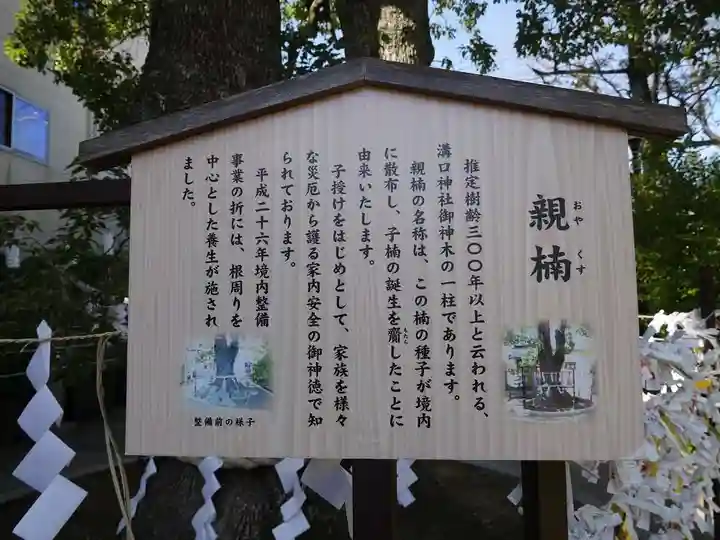 親楠
おや くす
推定樹齢三〇〇年以上と云われる、
溝口神社御神木の一柱であります。
親楠の名称は、この楠の種子が境内
に散布し、子楠の誕生を齎したことに
もたら
由来いたします。
子授けをはじめとして、家族を様々
な災厄から護る家内安全の御神徳で知
られております。
平成二十六年境内整備
事業の折には、根周りを
中心とした養生が施され
ました。
整備前の様子